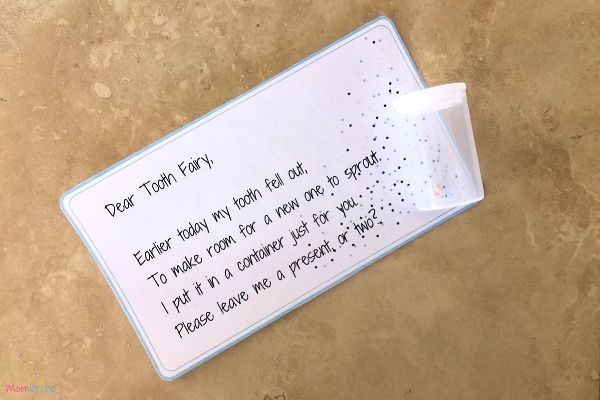 Dear Tooth Fairy,
Earlier today my tooth fell out,
To make room for a new one to sprout.
I put it in a container just for you.
Please leave me a present or two?